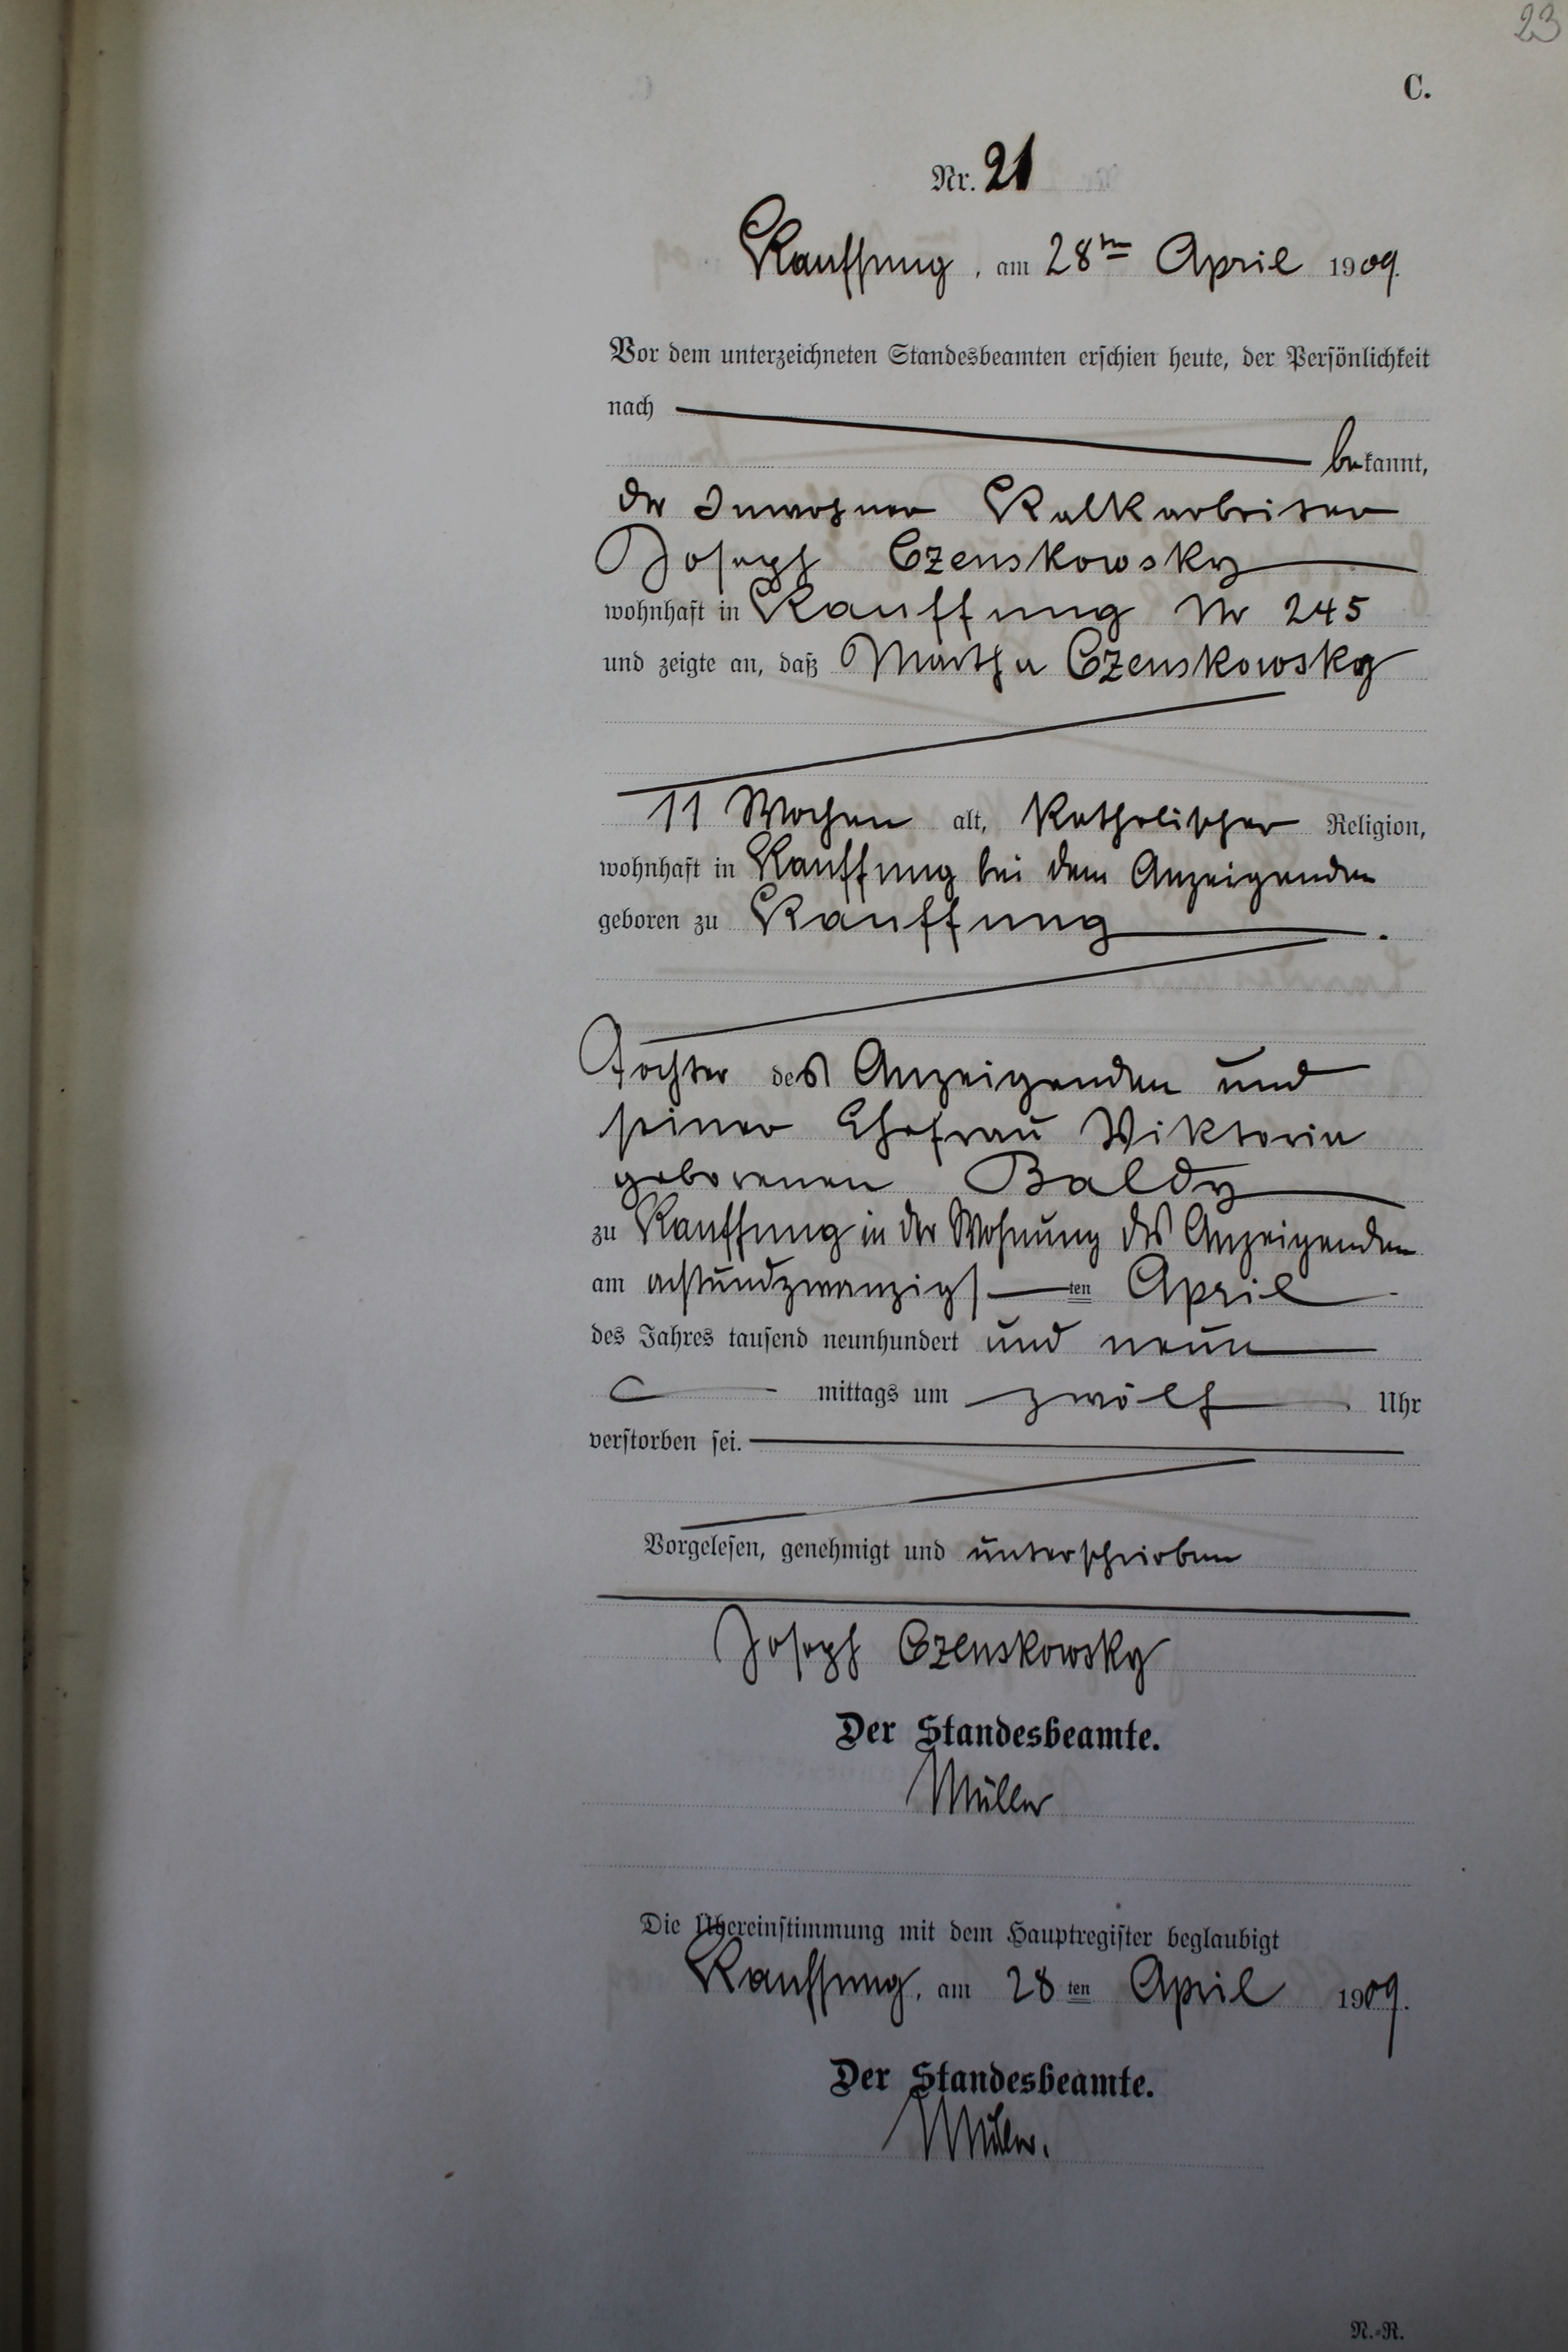 23
C.
Nr. 21
Kauffung, am 28ten April 1909.
Vor dem unterzeichneten Standesbeamten erschien heute, der Persönlichkeit
nach
bekannt,
der Inwohner Kalkarbeiter
Joseph Czenskowsky
wohnhaft in Kauffung Nr 245
und zeigte an, daß Martha Czenskowsky
11 Wochen alt, katholischer Religion,
wohnhaft in Kauffung bei dem Anzeigenden
geboren zu Kauffung.
Tochter des Anzeigenden und
seiner Ehefrau Viktoria
geborenen Baldy
zu Kauffung in der Wohnung des Anzeigenden
am achtundzwanzigsten April
des Jahres tausend neunhundert und neun
mittags um zwölf Uhr
verstorben sei.
Vorgelesen, genehmigt und unterschrieben
Joseph Czenskowsky
Der Standesbeamte.
Müller
Die Übereinstimmung mit dem Hauptregister beglaubigt
Kauffung, am 28ten April 1909.
Der Standesbeamte.
Müller.
N.-R.